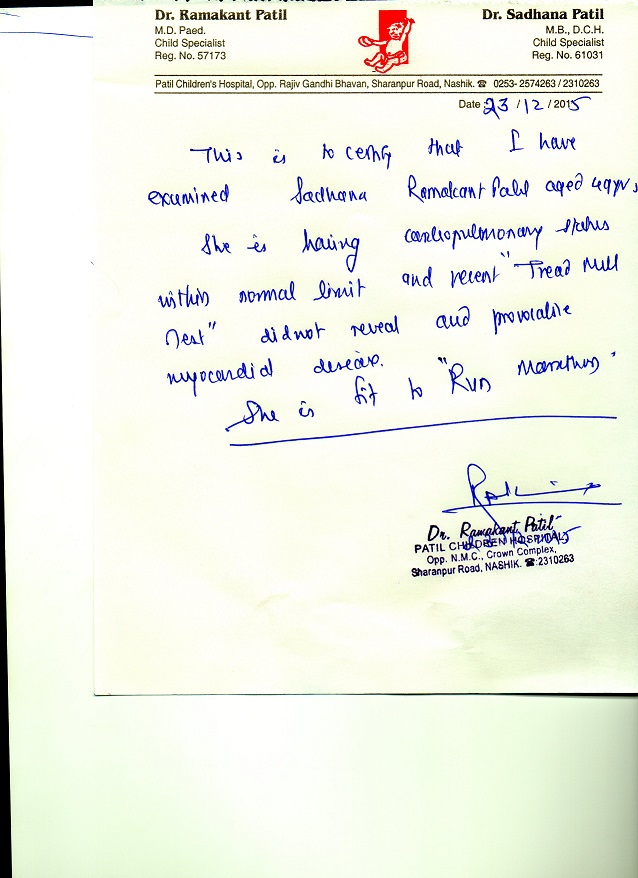 Dr. Ramakant Patil
M.D. Paed.
Child Specialist
Reg. No. 57173
Dr. Sadhana Patil
M.B., D.C.H.
Child Specialist
Reg. No. 61031
Patil Children's Hospital, Opp. Rajiv Gandhi Bhavan, Sharanpur Road, Nashik. ☎ 0253- 2574263 / 2310263
Date : 23 / 12 / 2015
This is to certify that I have
examined Sadhana Ramakant Patil aged 49yrs
She is having cardiopulmonary status
within normal limit and recent "Tread Mill
Test" didnot reveal and provocative
myocardial disease.
She is fit to "Run Marathon"
Dr. Ramakant Patil
PATIL CHILDREN HOSPITAL
Opp. N.M.C., Crown Complex,
Sharanpur Road, NASHIK. ☎:2310263